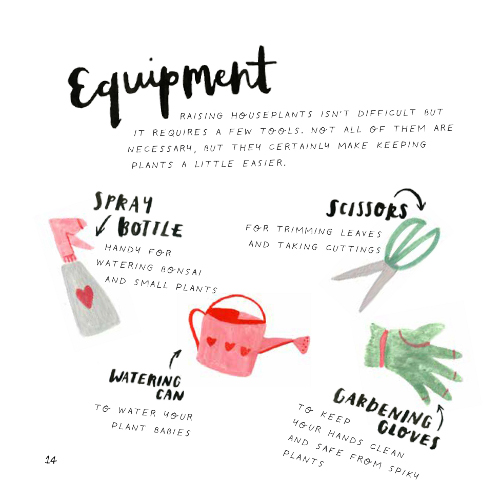 Equipment
RAISING HOUSEPLANTS ISN'T DIFFICULT BUT
IT REQUIRES A FEW TOOLS. NOT ALL OF THEM ARE
NECESSARY, BUT THEY CERTAINLY MAKE KEEPING
PLANTS A LITTLE EASIER.
SPRAY
BOTTLE
HANDY FOR
WATERING BONSAI
AND SMALL PLANTS
SCISSORS
FOR TRIMMING LEAVES
AND TAKING CUTTINGS
WATERING
CAN
TO WATER YOUR
PLANT BABIES
GARDENING
GLOVES
TO KEEP
YOUR HANDS CLEAN
AND SAFE FROM SPIKY
PLANTS
14